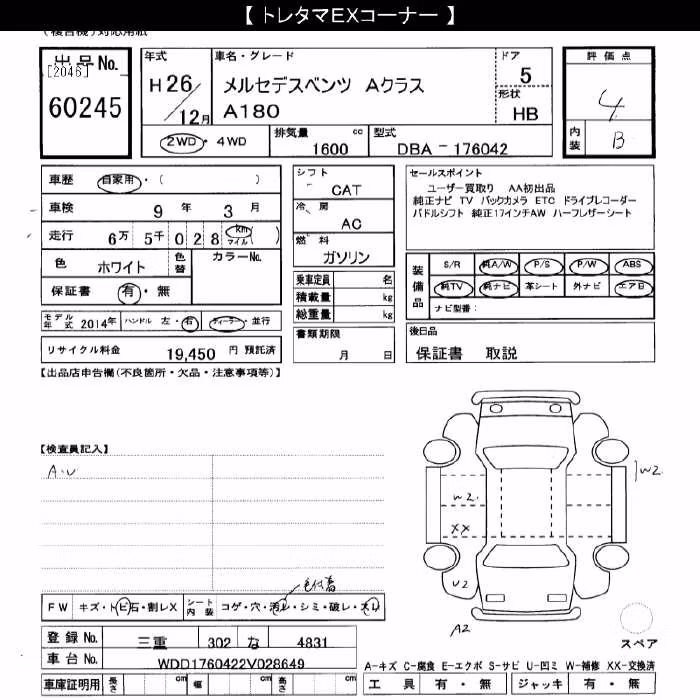 【 トレタマEXコーナー 】
出品No. [2046] 60245
年式 H26/12月
車名・グレード メルセデスベンツ Aクラス A180
ドア 5
形状 HB
評価点 4
内装 B
2WD・4WD
排気量 1600 cc
型式 DBA - 176042
車歴 自家用・( )
車検 9年 3月
走行 6万 5千 028 km マイル ( )
色 ホワイト 色替 カラーNo.
保証書 有・無
モデル年式 2014年 ハンドル 左・右 ディーラー・並行
リサイクル料金 19,450 円 預託済
シフト CAT
冷房 AC
燃料 ガソリン
乗車定員 名
積載量 kg
総重量 kg
書類期限 月 日
セールスポイント
ユーザー買取り AA初出品
純正ナビ TV バックカメラ ETC ドライブレコーダー
パドルシフト 純正17インチAW ハーフレザーシート
装備品 S/R 純A/W P/S P/W ABS
純TV 純ナビ 革シート 外ナビ エアB
ナビ型番:
後日品
保証書 取説
【出品店申告欄(不良箇所・欠品・注意事項等)】
【検査員記入】
A.U
W2
W2
XX
U2
A2
スペア
FW キズ・トビ石・割レX シート内装 コゲ・穴・汚レ・シミ・破レ・スレ
登録No. 三重 302 な 4831
車台No. WDD1760422V028649
車庫証明用 長さ cm 幅 cm 高さ cm
A-キズ C-腐食 E-エクボ S-サビ U-凹ミ W-補修 XX-交換済
工具 有・無 ジャッキ 有・無